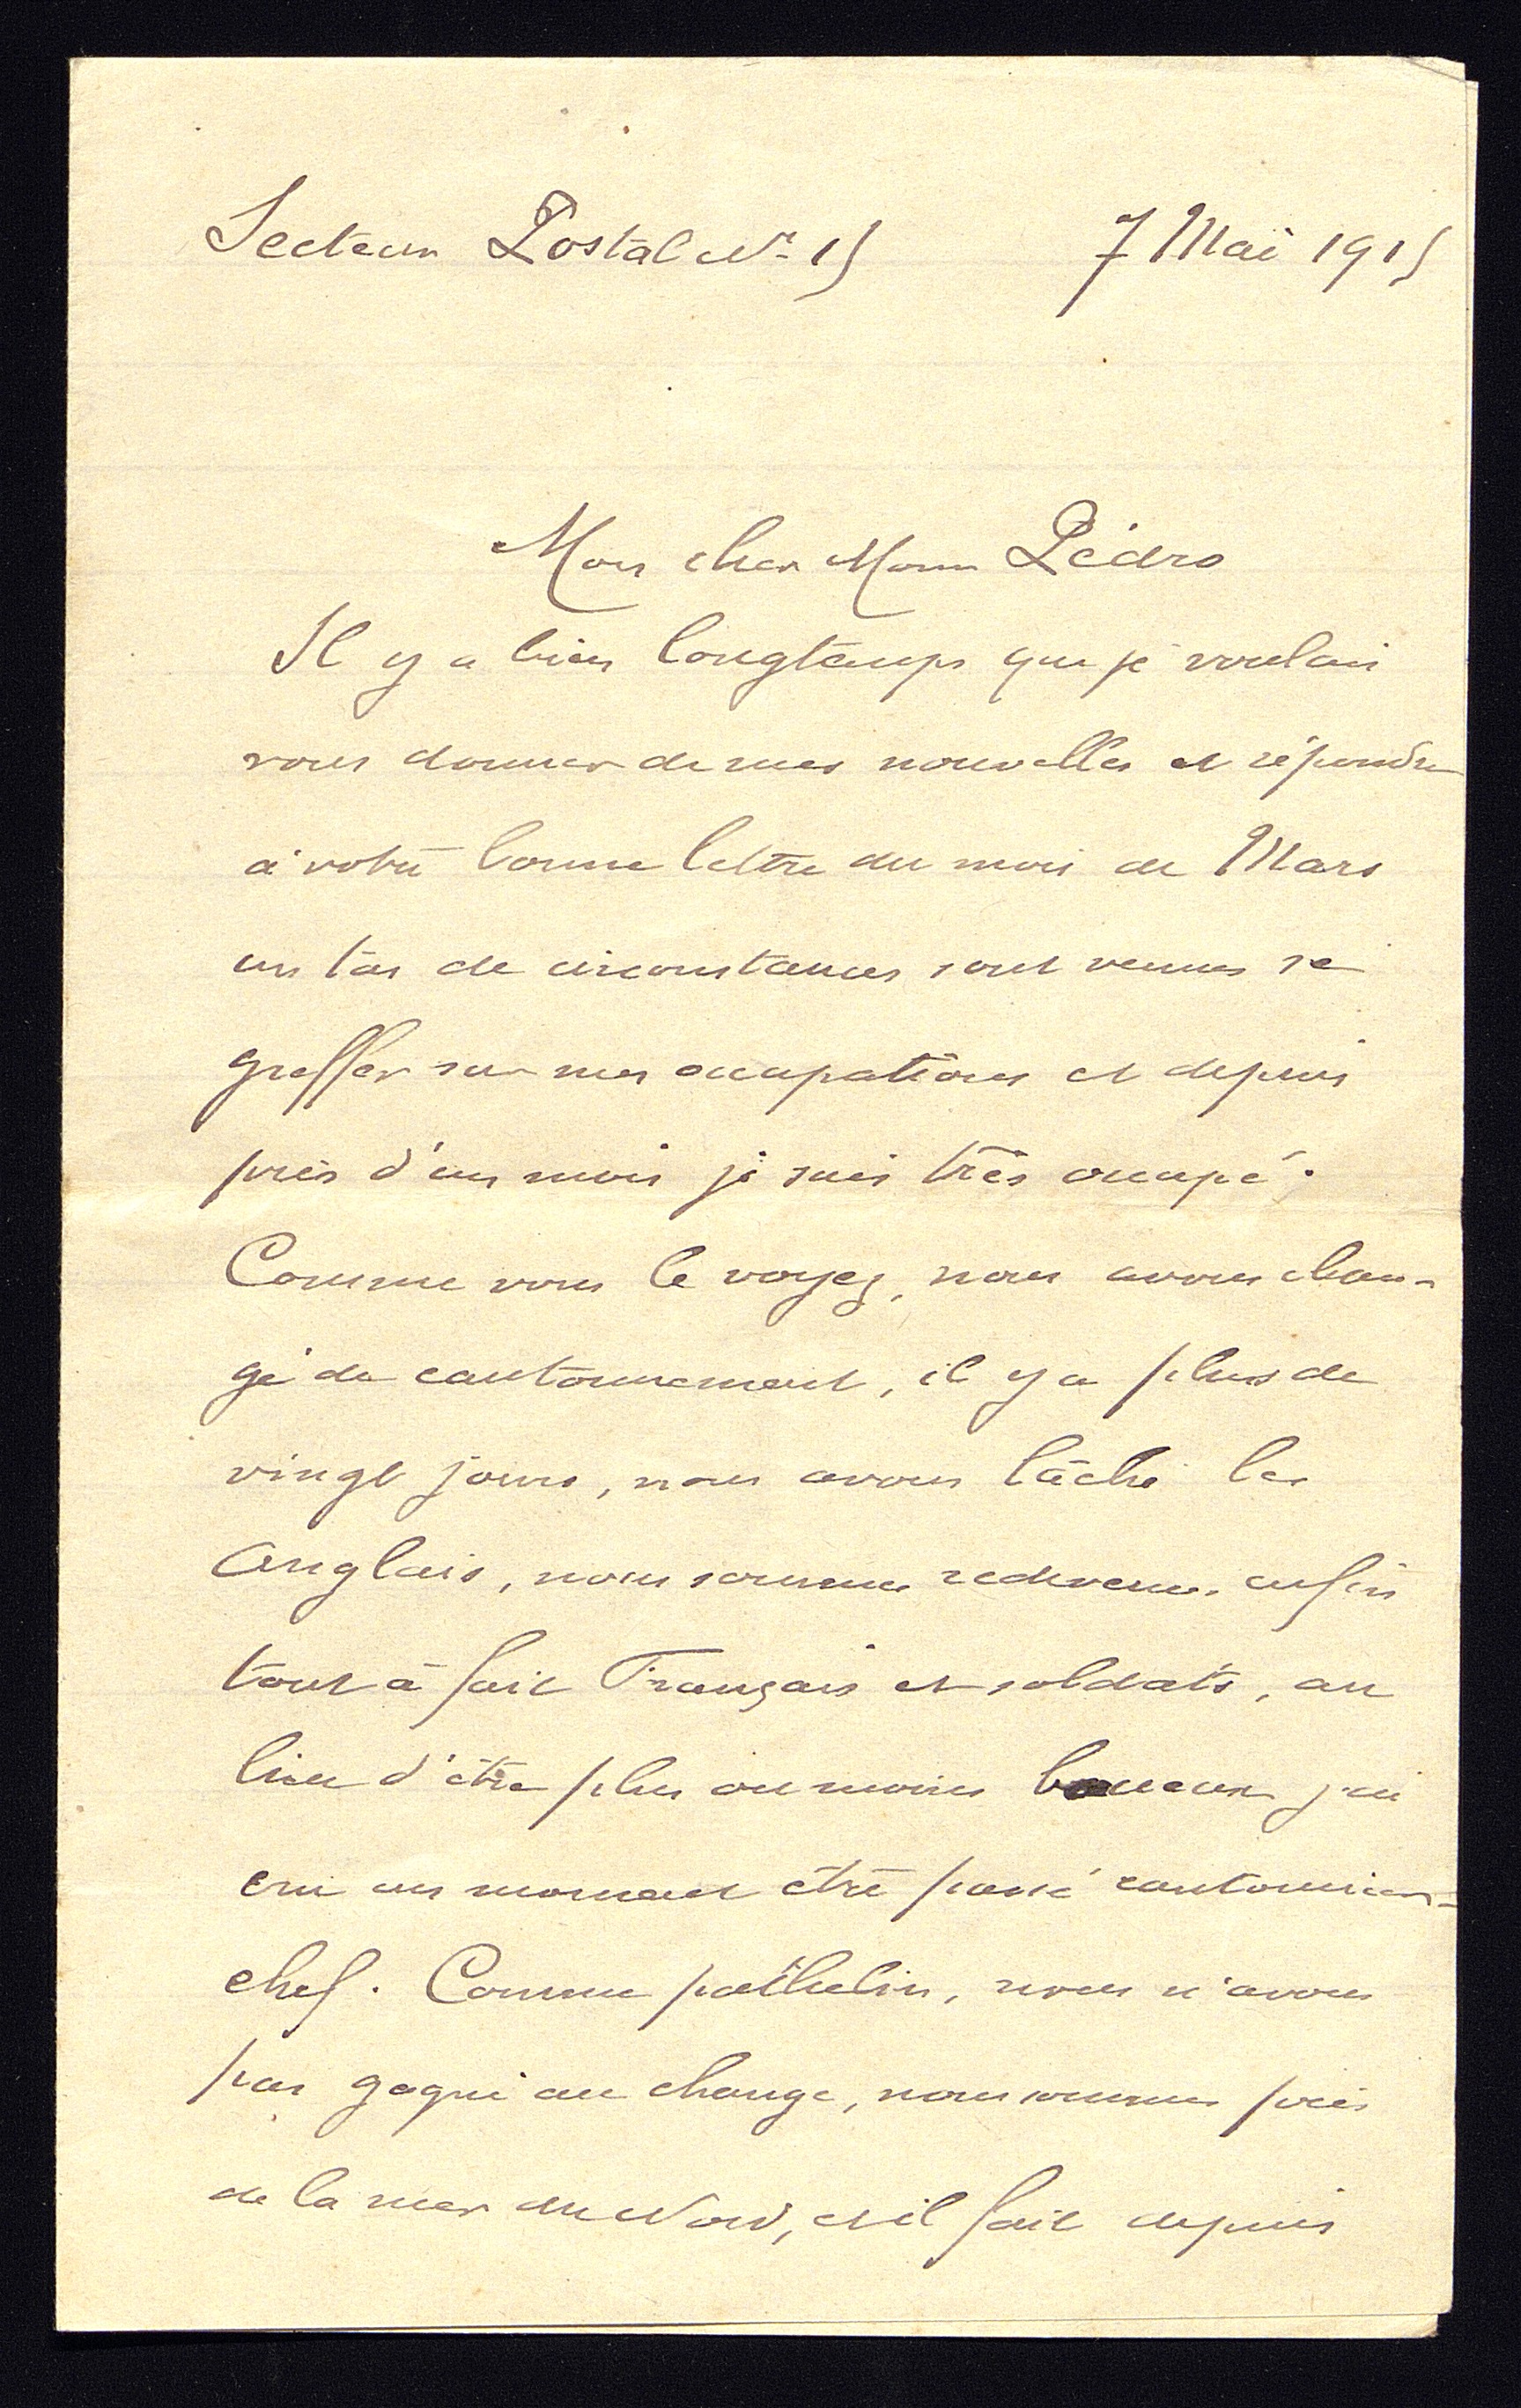 Secteur Postal N° 15 7 Mai 1915
Mon cher Mour Pédro
Il y a bien longtemps que je voulais
vous donner de mes nouvelles et répondre
à votre bonne lettre du mois de Mars
un tas de circonstances sont venues se
greffer sur mes occupations et depuis
près d'un mois je suis très occupé.
Comme vous le voyez, nous avons chan-
gé de cantonnement, il y a plus de
vingt jours, nous avons lâché les
Anglais, nous sommes redevenus enfin
tout à fait Français et soldats, au
lieu d'être plus ou moins j'ai
cru un moment être passé cantonnier-
chef. Comme pathelin, nous n'avons
pas gagné au change, nous sommes près
de la mer du Nord, et il fait depuis